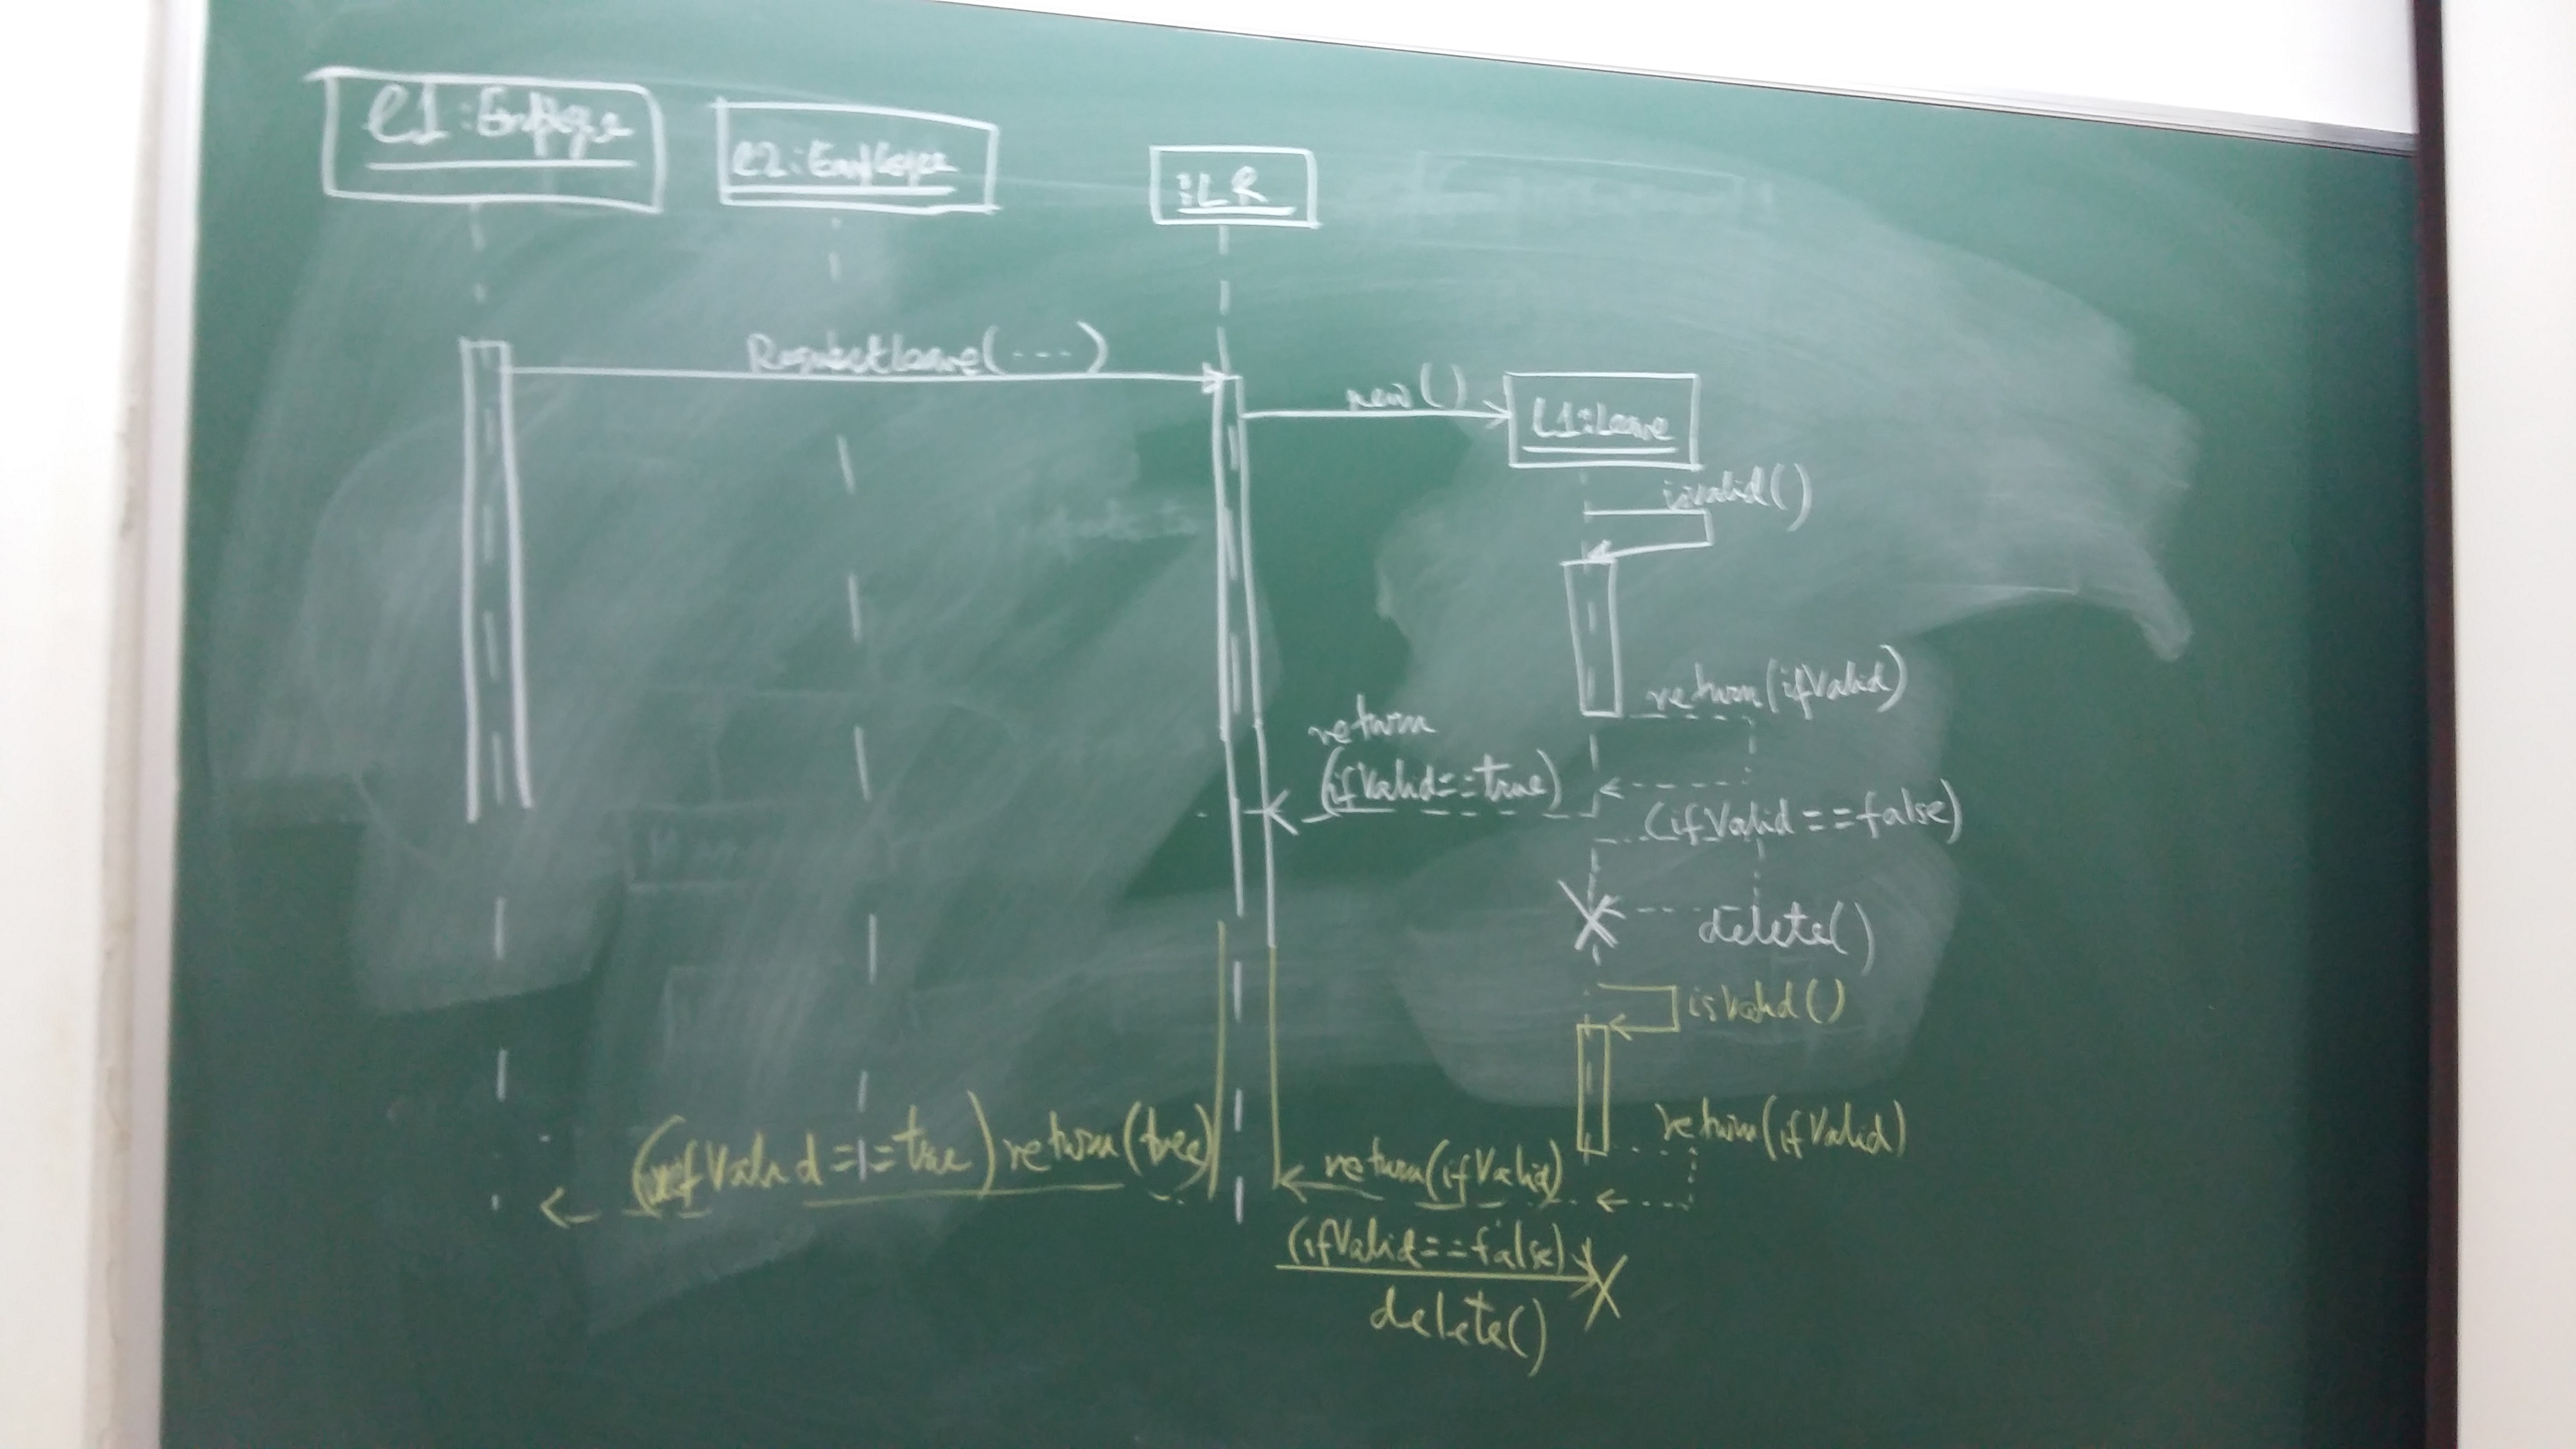 e1:Employee
e2:Employee
:LR
RequestLeave(----)
new()
l1:Leave
isvalid()
return(ifValid)
return
(ifValid==true)
(ifValid==false)
delete()
isValid()
return(ifValid)
(ifValid==true) return(true)
return(ifValid)
(ifValid==false)
delete()